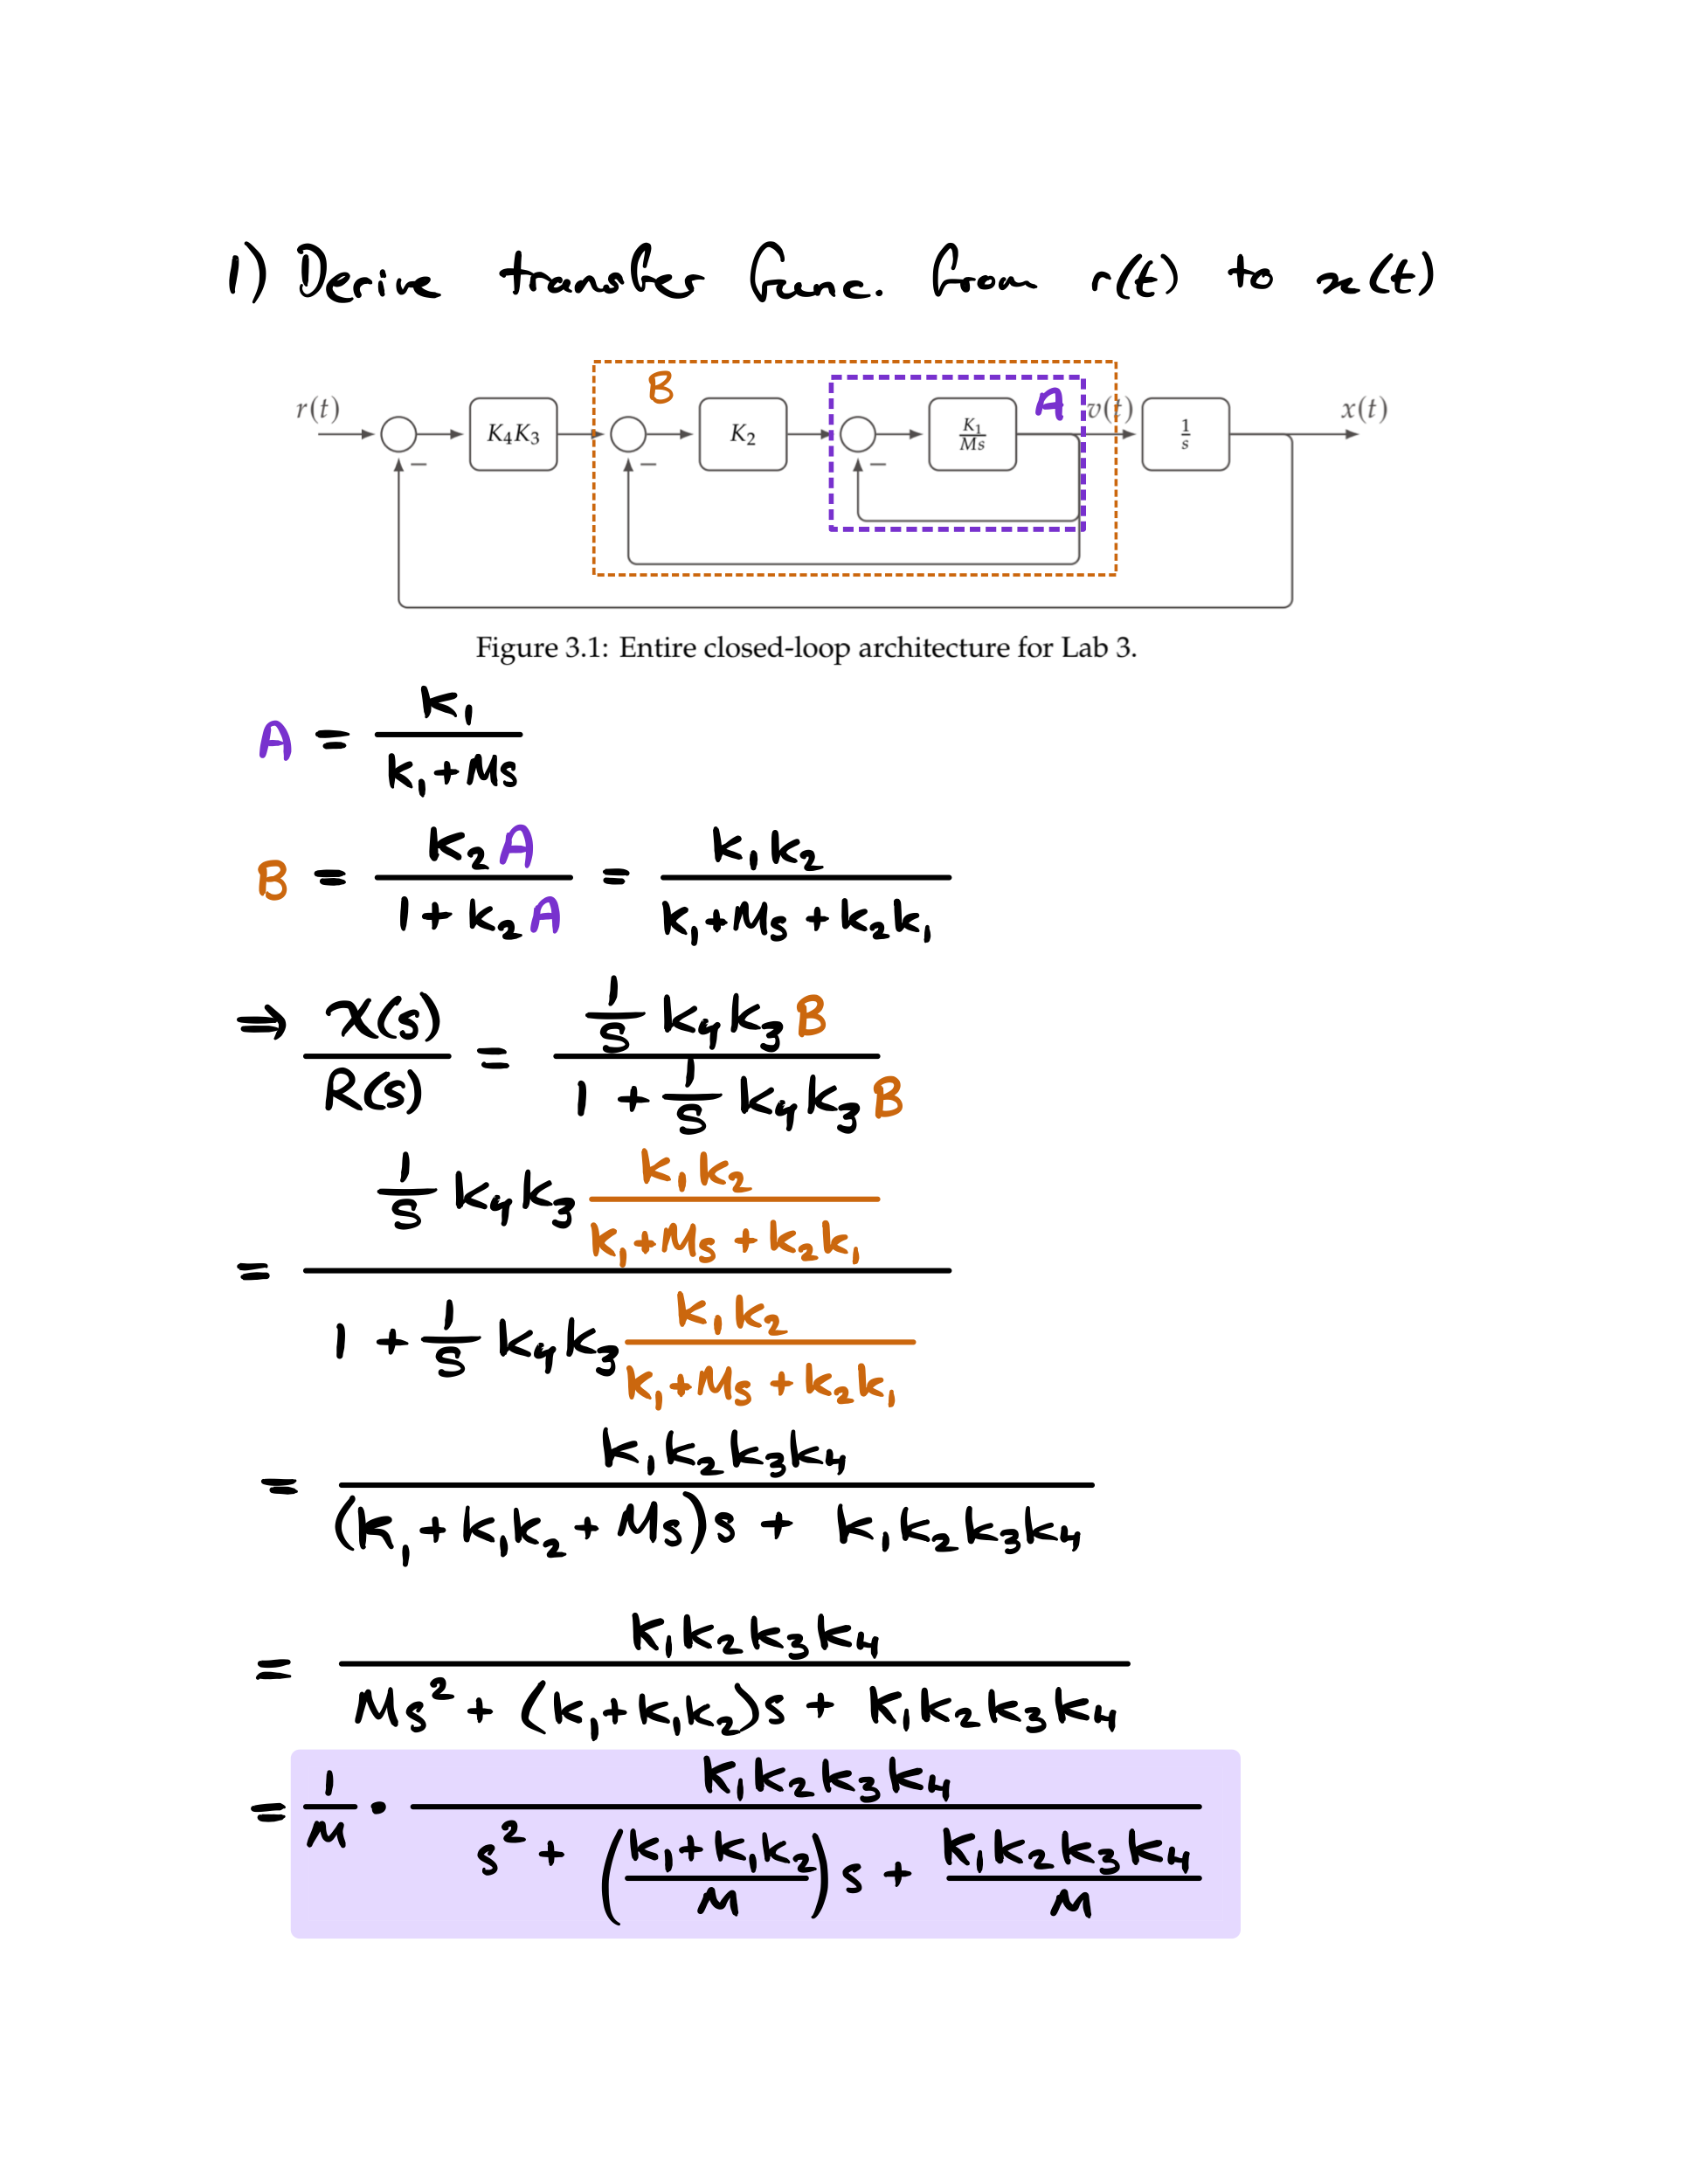 1) Derive transfer func. from r(t) to x(t)
B
A
r(t) K₄K₃ K₂ K₁/Ms v(t) 1/s x(t)
− − −
Figure 3.1: Entire closed-loop architecture for Lab 3.
A = K₁ / (K₁+Ms)
B = K₂A / (1+K₂A) = K₁K₂ / (K₁+Ms+K₂K₁)
⇒ X(s)/R(s) = (1/s K₄K₃B) / (1 + 1/s K₄K₃B)
= (1/s K₄K₃ K₁K₂/(K₁+Ms+K₂K₁)) / (1 + 1/s K₄K₃ K₁K₂/(K₁+Ms+K₂K₁))
= K₁K₂K₃K₄ / ((K₁+K₁K₂+Ms)s + K₁K₂K₃K₄)
= K₁K₂K₃K₄ / (Ms²+(K₁+K₁K₂)s + K₁K₂K₃K₄)
= 1/M · K₁K₂K₃K₄ / (s²+((K₁+K₁K₂)/M)s + K₁K₂K₃K₄/M)